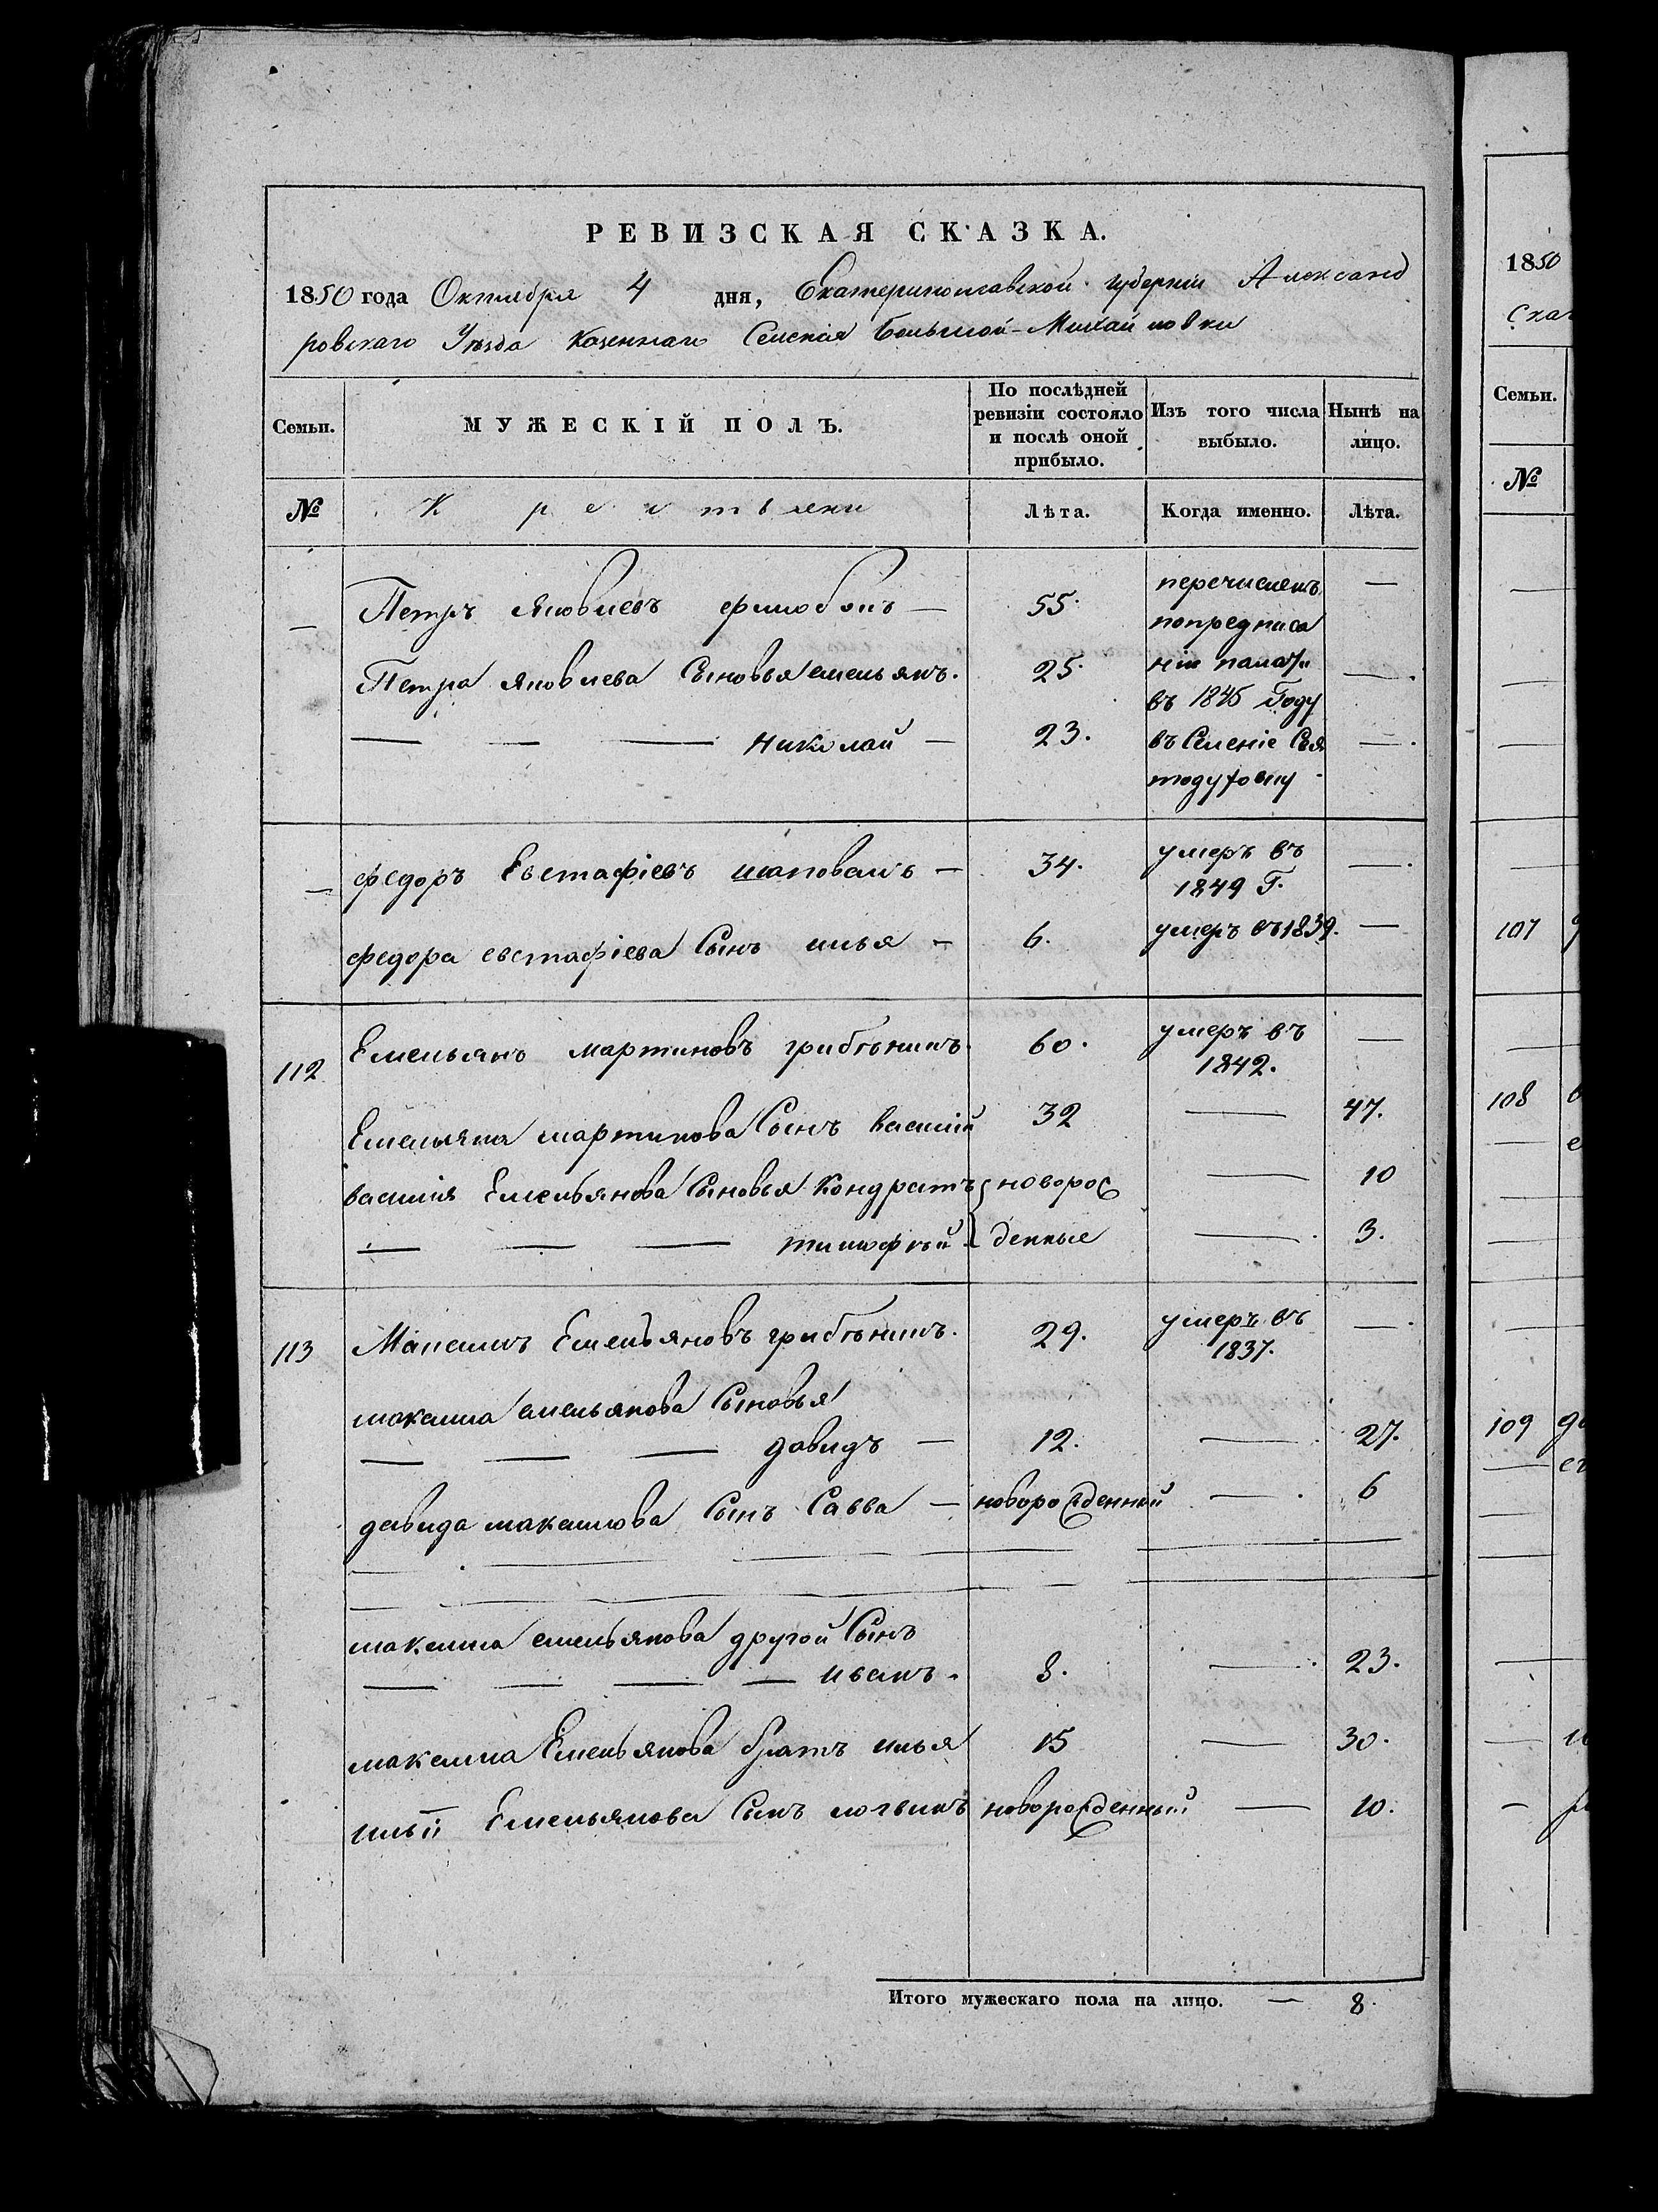 РЕВИЗСКАЯ СКАЗКА.
1850 года Октября 4 дня, Екатеринославской губерніи Александ
ровскаго Уѣзда Казеннаго Селенія Большой-Михайловки
Семьи.
МУЖЕСКІЙ ПОЛЪ.
По послѣдней ревизіи состояло и послѣ оной прибыло.
Изъ того числа выбыло.
Нынѣ на лицо.
№ Крестьяни Лѣта. Когда именно. Лѣта.
— Петръ Яковлевъ — 55. перечисленъ —
попредписа
Петра Яковлева Сыновья емельянъ. 25. нію палаты —.
въ 1845 Году
— — — николай — 23. въ Селеніе Свя —.
тодуховку
— федоръ Евстафіевъ шаповалъ — 34. умеръ въ —.
1849 Г.
федора евстафіева Сынъ илья — 6. умеръ въ 1839. —
112 Емельянъ мартиновъ грибѣникъ. 60. умеръ въ —
1842.
Емельяна мартинова Сынъ василій 32 — 47.
василія Емельянова Сыновья Кондратъ новорож — 10
— — — тимофѣй денные — 3.
113 Максимъ Емельяновъ грибѣникъ. 29. умеръ въ —.
1837.
максима емельянова Сыновья
— — — давидъ — 12. — 27.
давида максимова Сынъ Савва — новорожденной — 6
максима емельянова другой Сынъ
— — — — иванъ. 8. — 23.
максима Емельянова братъ илья 15 — 30.
ильи Емельянова Сынъ логвинъ новорожденный — 10.
Итого мужескаго пола на лицо. — 8.
1850
Семьи.
№
107
108
109